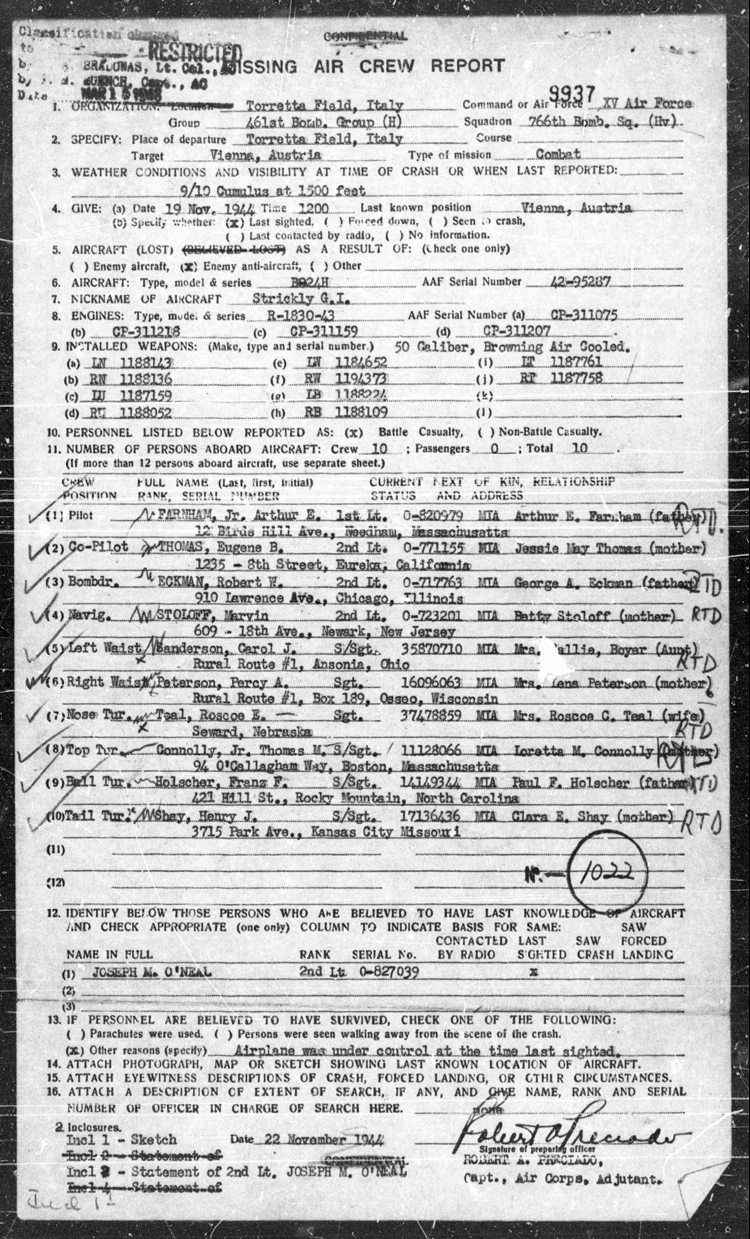 Classification changed
to RESTRICTED
CONFIDENTIAL
b BRADUNAS, Lt. Col., AC
by Capt., AC
Date MAR 1 5
MISSING AIR CREW REPORT
9937
1. ORGANIZATION: Torretta Field, Italy Command or Air Force XV Air Force
Group 461st Bomb. Group (H) Squadron 766th Bomb. Sq. (Hv)
2. SPECIFY: Place of departure Torretta Field, Italy Course
Target Vienna, Austria Type of mission Combat
3. WEATHER CONDITIONS AND VISIBILITY AT TIME OF CRASH OR WHEN LAST REPORTED:
9/10 Cumulus at 1500 feet
4. GIVE: (a) Date 19 Nov. 1944 Time 1200 Last known position Vienna, Austria
(b) Specify whether: (x) Last sighted, ( ) Forced down, ( ) Seen to crash,
( ) Last contacted by radio, ( ) No information.
5. AIRCRAFT (LOST) (BELIEVED LOST) AS A RESULT OF: (Check one only)
( ) Enemy aircraft, (x) Enemy anti-aircraft, ( ) Other
6. AIRCRAFT: Type, model & series B024H AAF Serial Number 42-95287
7. NICKNAME OF AIRCRAFT Strickly G.I.
8. ENGINES: Type, model & series R-1830-43 AAF Serial Number (a) CP-311075
(b) CP-311218 (c) CP-311159 (d) CP-311207
9. INSTALLED WEAPONS: (Make, type and serial number.) 50 Caliber, Browning Air Cooled.
(a) LN 1188143 (e) LW 1184652 (i) LT 1187761
(b) RN 1188136 (f) RW 1194373 (j) RT 1187758
(c) LU 1187159 (g) LB 1188224 (k)
(d) RU 1188052 (h) RB 1188109 (l)
10. PERSONNEL LISTED BELOW REPORTED AS: (x) Battle Casualty, ( ) Non-Battle Casualty.
11. NUMBER OF PERSONS ABOARD AIRCRAFT: Crew 10 ; Passengers 0 ; Total 10
(If more than 12 persons aboard aircraft, use separate sheet.)
CREW FULL NAME (Last, first, initial) CURRENT NEXT OF KIN, RELATIONSHIP
POSITION RANK, SERIAL NUMBER STATUS AND ADDRESS
(1) Pilot FARNHAM, Jr. Arthur E. 1st Lt. 0-820979 MIA Arthur E. Farnham (father) RTD.
12 Birds Hill Ave., Needham, Massachusetts
(2) Co-Pilot THOMAS, Eugene B. 2nd Lt. 0-771155 MIA Jessie May Thomas (mother)
1235 - 8th Street, Eureka, California
(3) Bombdr. ECKMAN, Robert W. 2nd Lt. 0-717763 MIA George A. Eckman (father) RTD
910 Lawrence Ave., Chicago, Illinois
(4) Navig. STOLOFF, Marvin 2nd Lt. 0-723201 MIA Betty Stoloff (mother) RTD
609 - 18th Ave., Newark, New Jersey
(5) Left Waist Sanderson, Carol J. S/Sgt. 35870710 MIA Mrs. allie, Boyer (Aunt) RTD
Rural Route #1, Ansonia, Ohio
(6) Right Waist Peterson, Percy A. Sgt. 16096063 MIA Mrs. Lena Peterson (mother)
Rural Route #1, Box 189, Osseo, Wisconsin
(7) Nose Tur. Teal, Roscoe E. Sgt. 37478859 MIA Mrs. Roscoe C. Teal (wife) RTD
Seward, Nebraska
(8) Top Tur. Connolly, Jr. Thomas M. S/Sgt. 11128066 MIA Loretta M. Connolly (mother)
94 O'Callagham Way, Boston, Massachusetts
(9) Ball Tur. Holscher, Franz F. S/Sgt. 14149344 MIA Paul F. Holscher (father) RTD
421 Hill St., Rocky Mountain, North Carolina
(10) Tail Tur. Shay, Henry J. S/Sgt. 17136436 MIA Clara E. Shay (mother) RTD
3715 Park Ave., Kansas City Missouri
(11)
(12)
N. — 1022
12. IDENTIFY BELOW THOSE PERSONS WHO ARE BELIEVED TO HAVE LAST KNOWLEDGE OF AIRCRAFT
AND CHECK APPROPRIATE (one only) COLUMN TO INDICATE BASIS FOR SAME: SAW
CONTACTED LAST SAW FORCED
NAME IN FULL RANK SERIAL No. BY RADIO SIGHTED CRASH LANDING
(1) JOSEPH M. O'NEAL 2nd Lt 0-827039 x
(2)
(3)
13. IF PERSONNEL ARE BELIEVED TO HAVE SURVIVED, CHECK ONE OF THE FOLLOWING:
( ) Parachutes were used. ( ) Persons were seen walking away from the scene of the crash.
(x) Other reasons (specify) Airplane was under control at the time last sighted.
14. ATTACH PHOTOGRAPH, MAP OR SKETCH SHOWING LAST KNOWN LOCATION OF AIRCRAFT.
15. ATTACH EYEWITNESS DESCRIPTIONS OF CRASH, FORCED LANDING, OR OTHER CIRCUMSTANCES.
16. ATTACH A DESCRIPTION OF EXTENT OF SEARCH, IF ANY, AND GIVE NAME, RANK AND SERIAL
NUMBER OF OFFICER IN CHARGE OF SEARCH HERE. none
2 Inclosures.
Incl 1 - Sketch Date 22 November 1944 Robert A Preciado
Incl 2 - Statement of Signature of preparing officer
CONFIDENTIAL ROBERT A. PRECIADO,
Incl 2 - Statement of 2nd Lt. JOSEPH M. O'NEAL
Capt., Air Corps, Adjutant.
Incl 4 - Statement of